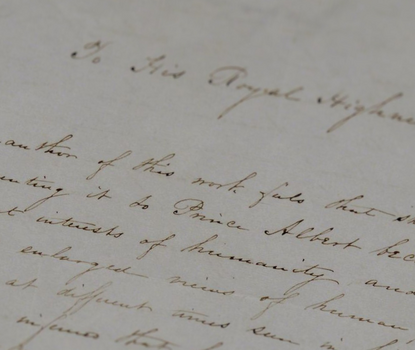 To His Royal Highne
author of this work feels that in
enting it to Prince Albert bec
t interests of humanity and
enlarged views of human
at different times seen in